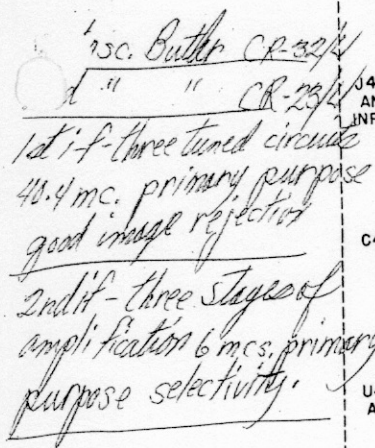 osc. Butler CR-32/U
" " CR-23/U
1st i-f-three tuned circuits
40.4 mc. primary purpose
good image rejection
2nd if - three stages of
amplification 6 mcs. primary
purpose selectivity.
J4
AN
INP
C4
U4
A